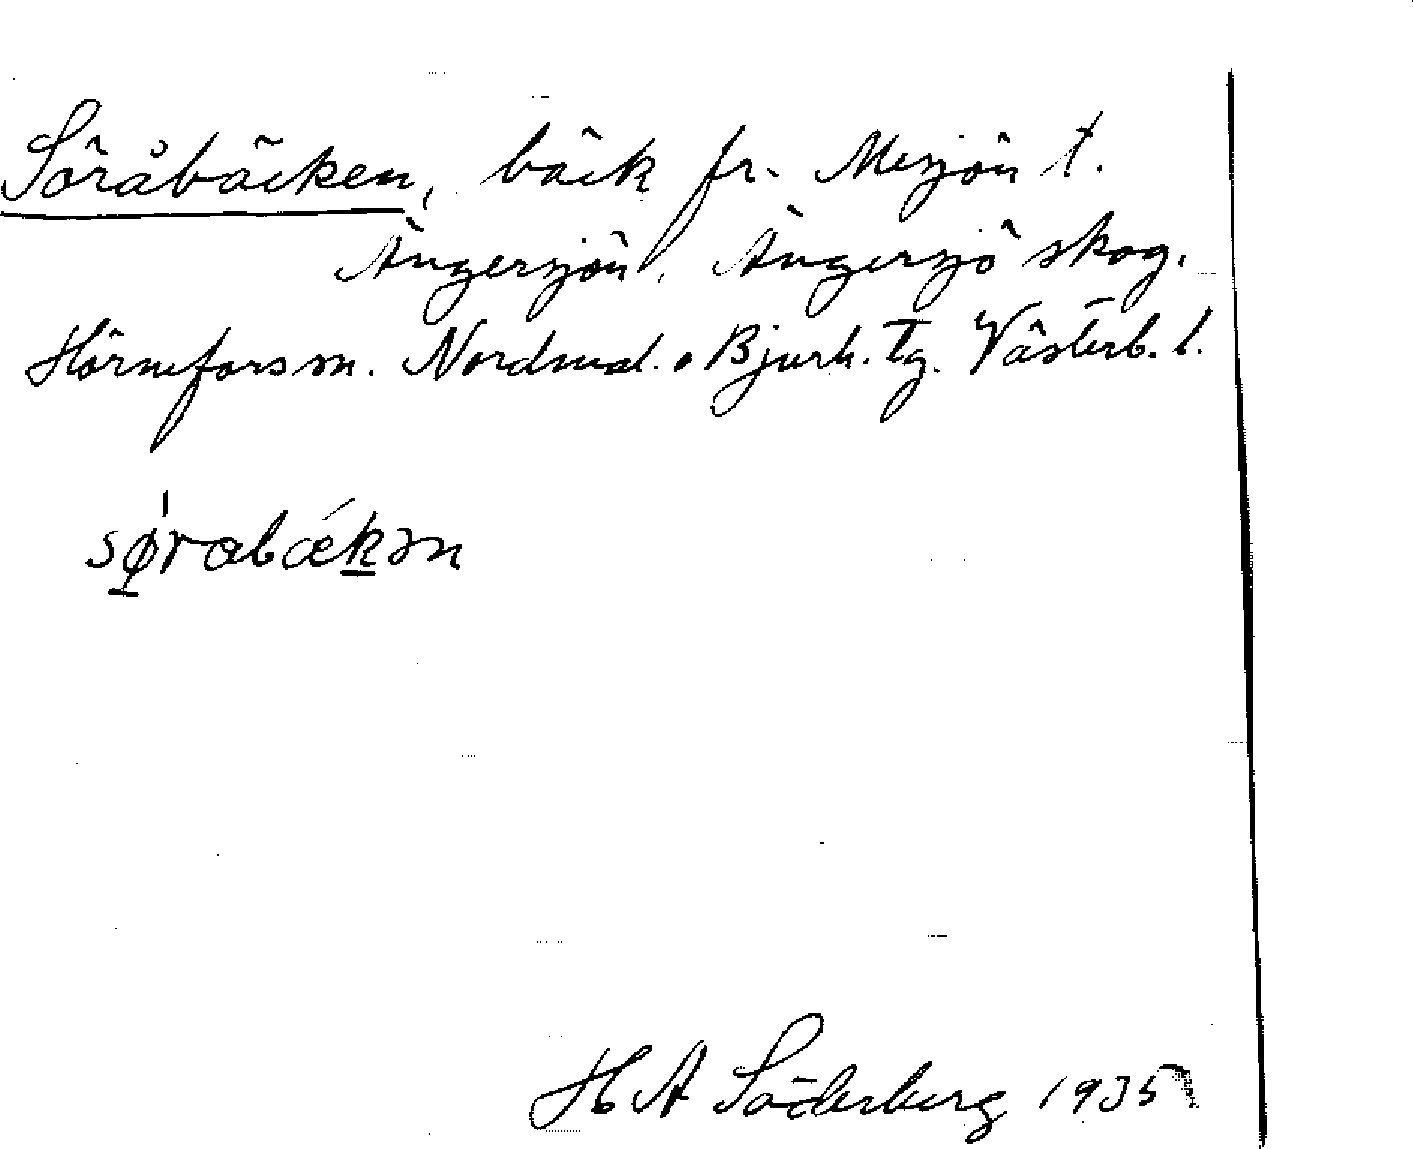 Söråbäcken, bäck fr. Mesjön t.
Ängersjön, Ängersjö skog.
Hörnefors sn. Nordmal. o Bjurh. Tg. Västerb. l.
sø̱rabǽḵən
H A Söderberg 1935